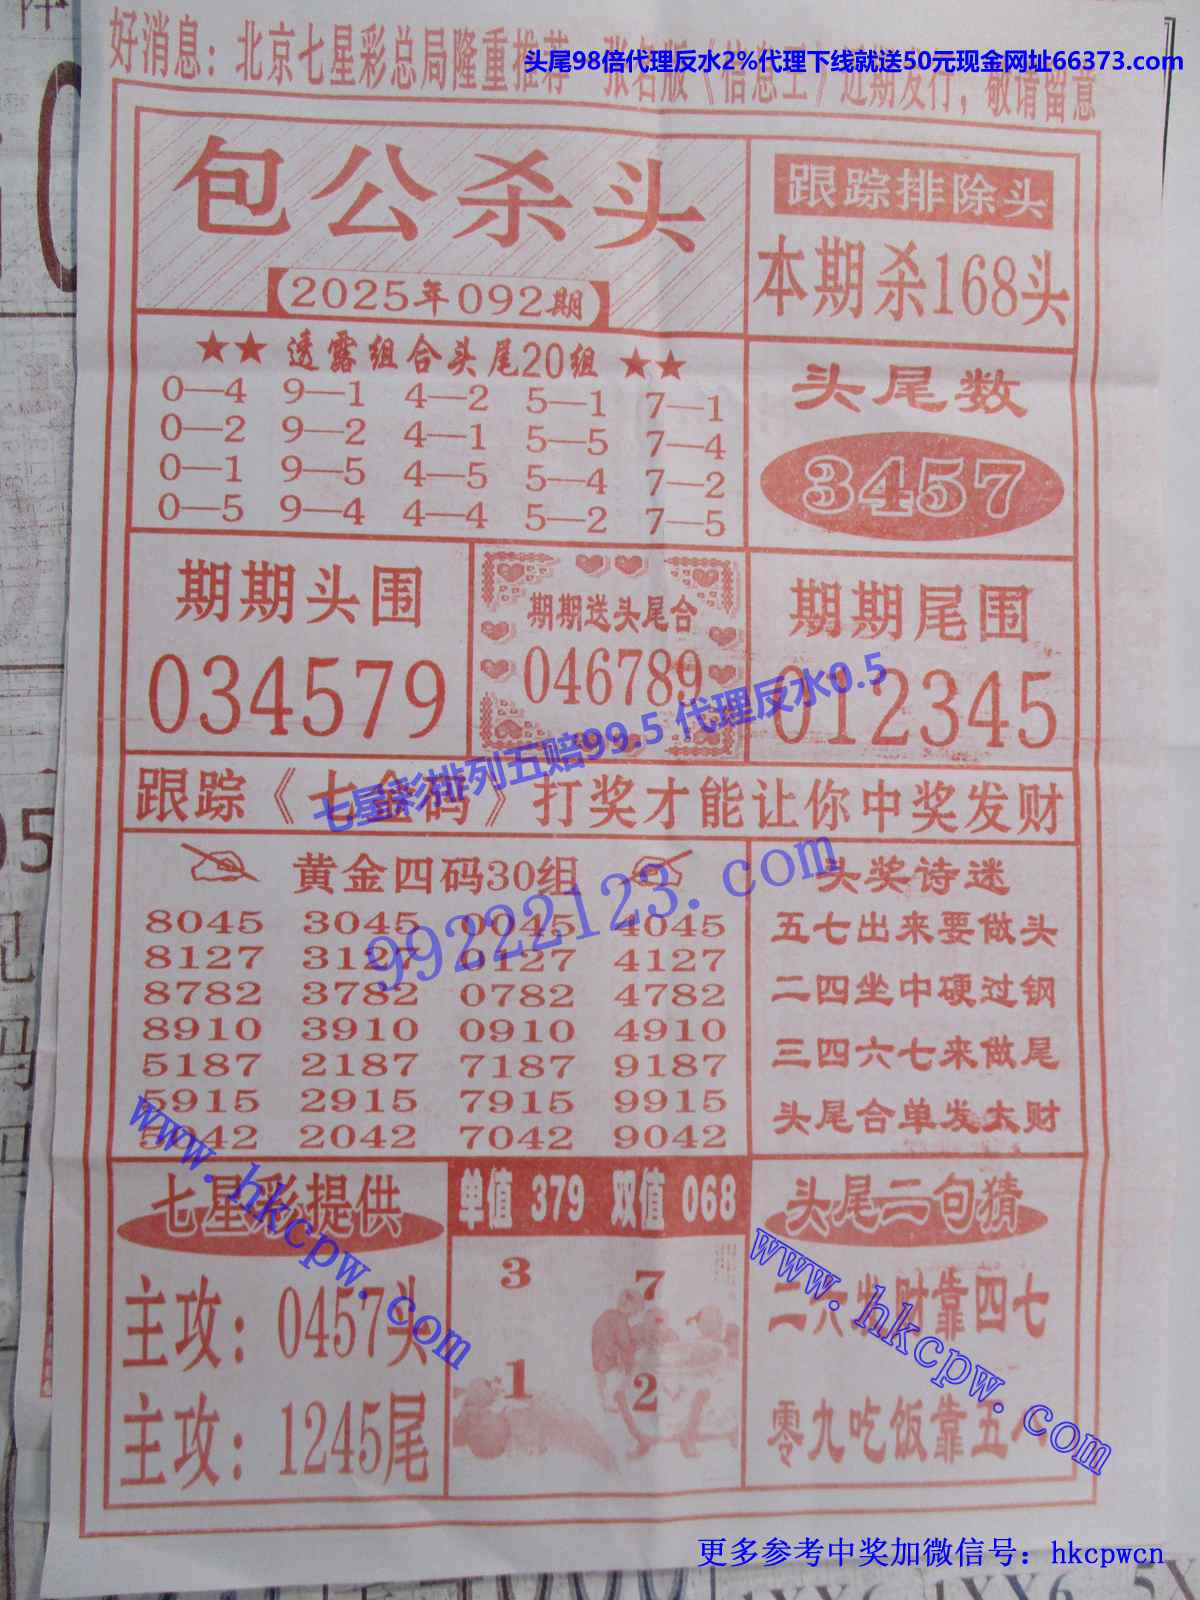 好消息：北京七星彩总局隆重推荐一张名版《信息王》近期发行，敬请留意
头尾98倍代理反水2%代理下线就送50元现金网址66373.com
包公杀头
【2025年092期】
跟踪排除头
本期杀168头
★★ 透露组合头尾20组 ★★
0—4 9—1 4—2 5—1 7—1
0—2 9—2 4—1 5—5 7—4
0—1 9—5 4—5 5—4 7—2
0—5 9—4 4—4 5—2 7—5
头尾数
3457
期期头围
034579
期期送头尾合
046789
期期尾围
012345
七星彩排列五赔99.5 代理反水0.5
跟踪《七金码》打奖才能让你中奖发财
黄金四码30组
99222123.com
8045 3045 0045 4045
8127 3127 0127 4127
8782 3782 0782 4782
8910 3910 0910 4910
5187 2187 7187 9187
5915 2915 7915 9915
5042 2042 7042 9042
头奖诗迷
五七出来要做头
二四坐中硬过钢
三四六七来做尾
头尾合单发大财
七星彩提供
主攻：0457头
主攻：1245尾
www.hkcpw.com
单值 379 双值 068
3
7
1
2
头尾二句猜
二六发财靠四七
零九吃饭靠五八
www.hkcpw.com
更多参考中奖加微信号：hkcpwcn